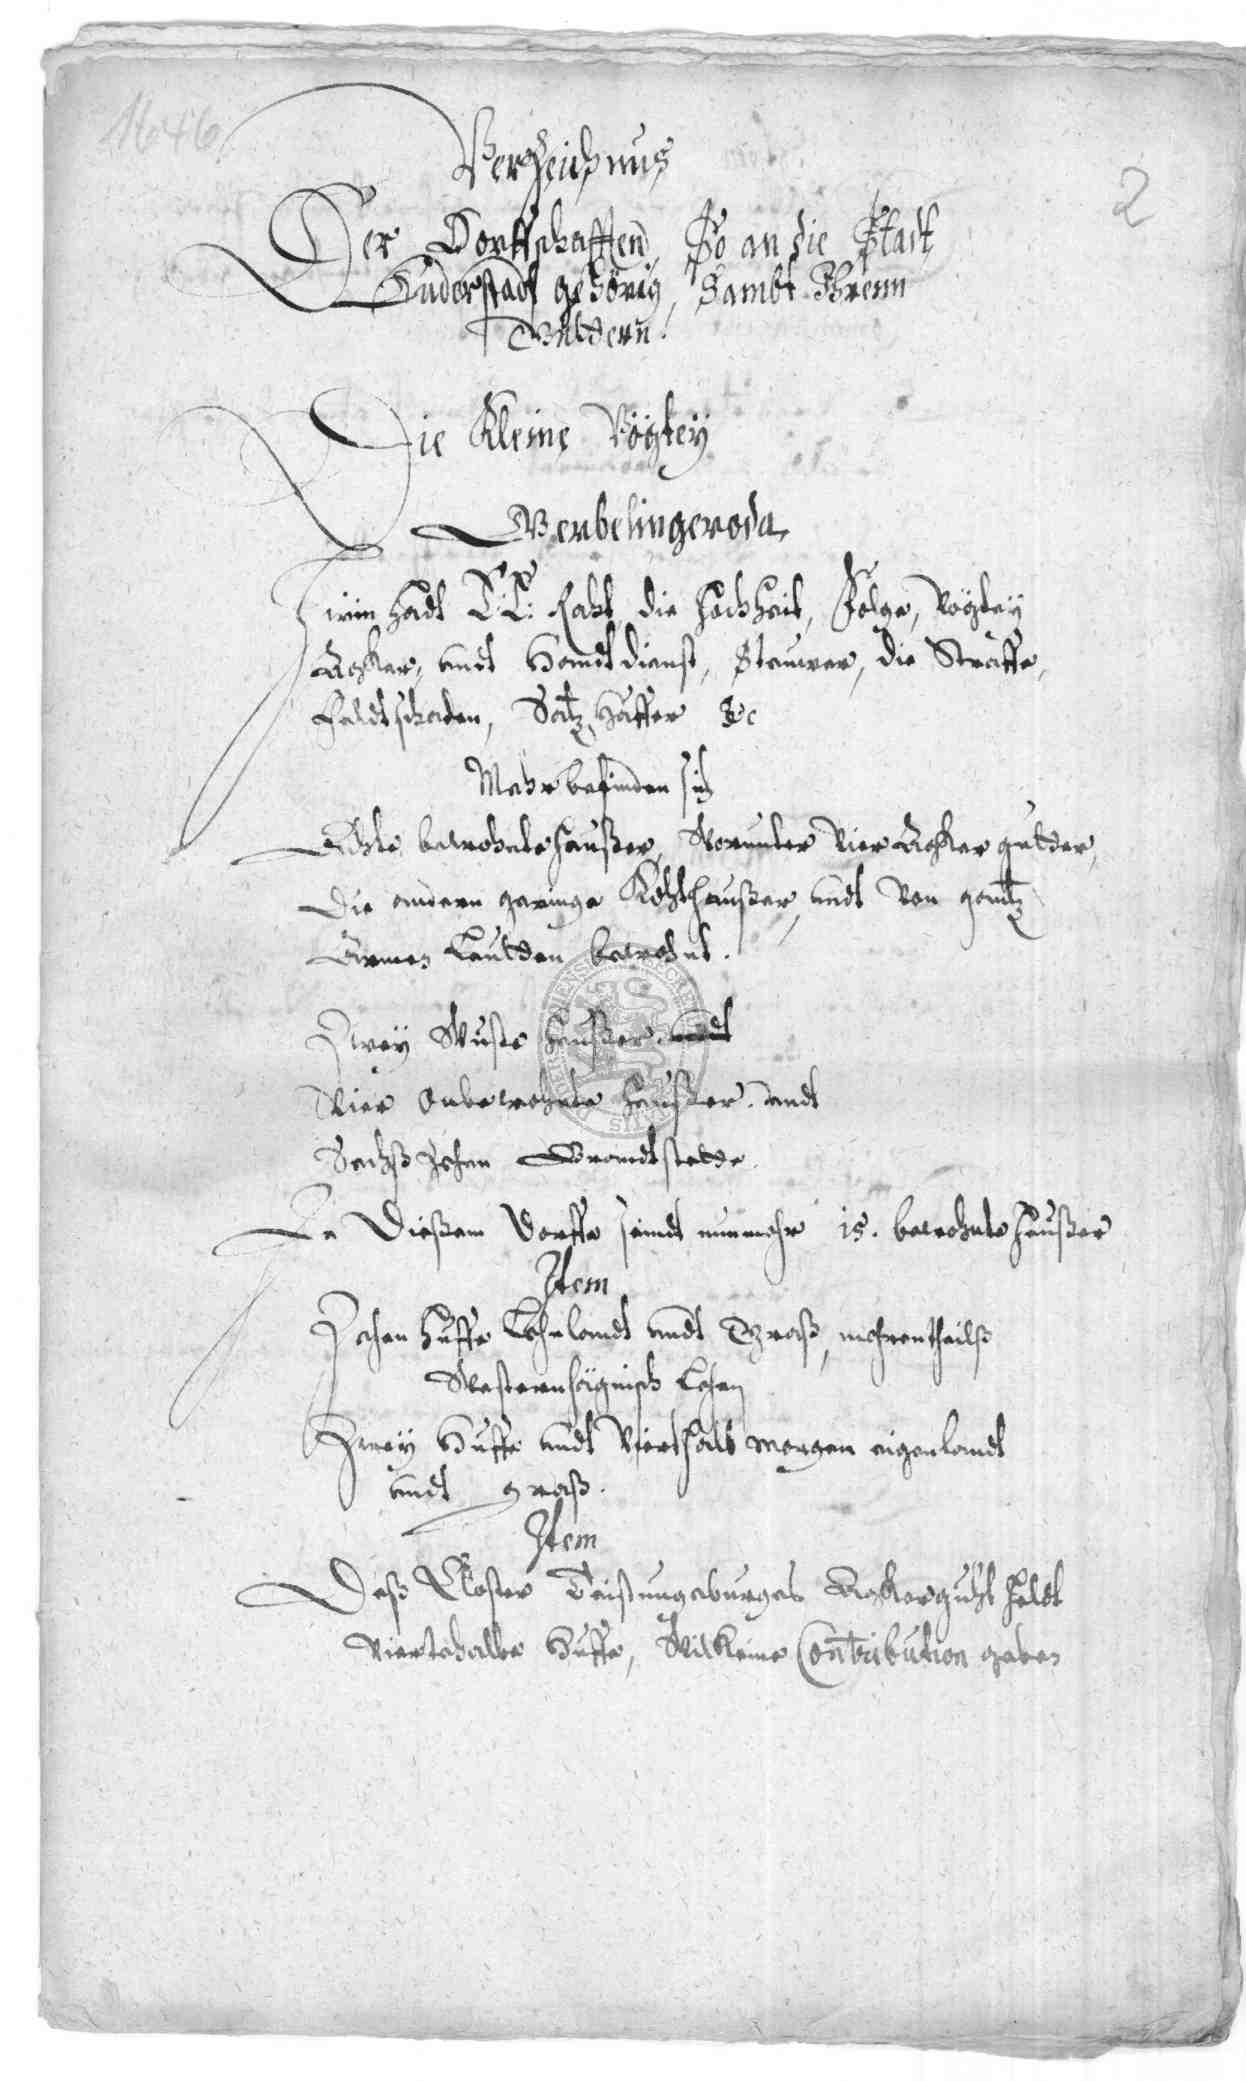 1646
2
Verzeichnus
Der Dorffschafften, So an die Stadt
Duderstadt gehörig, Sambt Ihrenn
Güttern.
Die Kleine Vögtey
Werbelingeroda
Hirin hadt E: E: Raht die Hochheit, Folge, Vögtey
Acker, undt Handtdienst, Steuwer, die Straffe,
Feldtschaden, Satz Haffer &c
Mehr befinden sich
Achte bewohnte Heußer, Worunter Vier Acker gutter,
Die andern geringe Kohtheußer, undt von gantz
Armen Leutten bewohnt.
Zwey Wuste Heußer. undt
Vier Onbewohnte Heußer. undt
Sechßzehen Brandtstette.
In Dießem Dorffe seindt nunmehr 15. bewohnte Heußer
Item
Zehen Huffe Lehnlandt undt Graß, mehrentheilß
Westernhägnisch Lehen
Zwey Huffe undt Vierthalb Morgen eigenlandt
undt graß.
Item
Deß Closter Teistungeburges Ackerguht heldt
Viertehalbe Huffe, Wil Keine Contribution geben